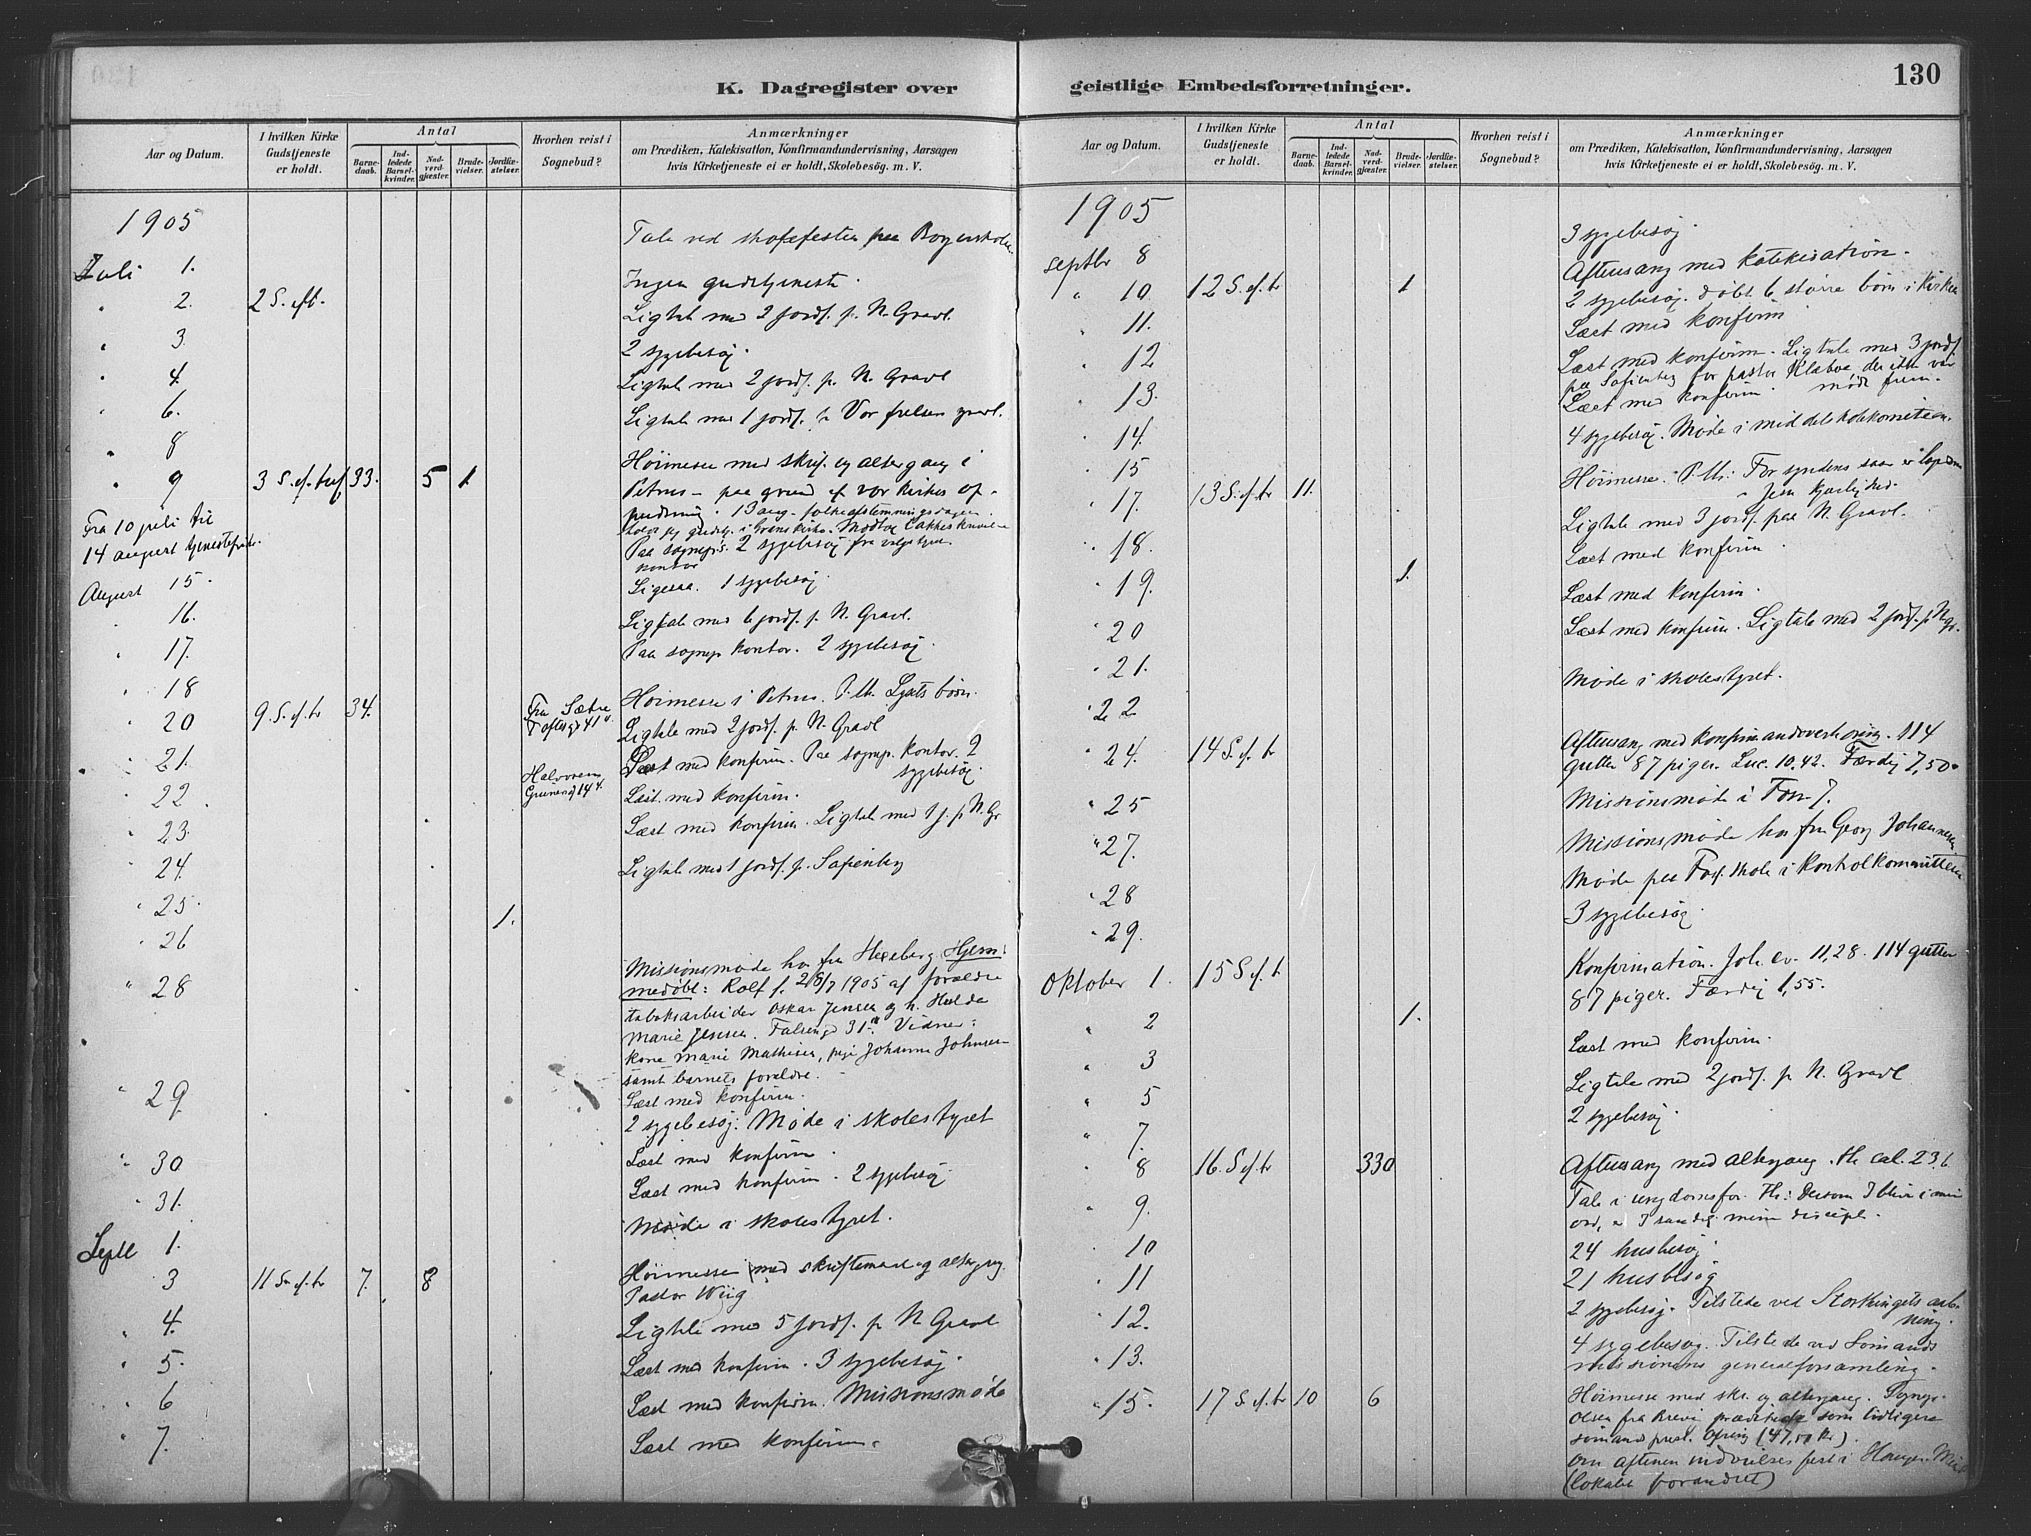 130
K. Dagregister over geistlige Embedsforretninger.
Aar og Datum.
I hvilken Kirke Gudstjeneste er holdt.
Antal
Barnedaab.
Indledede Barselkvinder.
Nadverdgjæster.
Brudevielser.
Jordfæstelser.
Hvorhen reist i Sognebud?
Anmærkninger
om Prædiken, Katekisation, Konfirmandundervisning, Aarsagen
hvis Kirketjeneste ei er holdt, Skolebesög. m. V.
1905
Tale ved skolefesten paa
Juli 1.
Ingen gudstjeneste.
" 2. 2 S. eft.
Ligtale med 2 jordf. p. N. Gravl.
" 3.
2 sygebesøg.
" 4.
Ligtale med 2 jordf. p. N. Gravl
" 6.
Ligtale med 1 jordf. p. Vor frelsers gravl.
" 8
" 9 3 S. ef. tref. 33. 5 1.
Høimesse med skrif. og altergang i
Petrus - paa grund af vor kirkes op-
pudsning. 13 aug. folkeafstemningsdagen
Fra 10 juli til
14 august tjenestefri
Paa sognepr. kontor 2 sygebesøg
August 15.
Ligesaa. 1 sygebesøg.
" 16.
Ligtale med 6 jordf. p. N. Gravl.
" 17.
Paa sognep kontor. 2 sygebesøg.
" 18
" 20 9. S. ef. tr 34.
Fra Sætre
Toftesgd 41
Høimesse i Petrus. P. th. børn.
Ligtale med 2 jordf. p. N. Gravl
" 21.
Halvorsen
Grunersgd 14
Læst med konfirm. Paa sognep. kontor. 2 sygebesøg.
" 22.
Læst med konfirm.
" 23.
Læst med konfirm. Ligtale med 1 j. p N. Gr
" 24.
Ligtale med 1 jordf. p. Sofienberg
" 25. 1.
" 26
" 28
Missionsmøde hos fru Hexeberg. Hjem-
medøbt: Rolf f. 28/7 1905 af forældre
tobaksarbeider Oskar Jensen og h. Hulda
Marie Jensen. Falsengd 31. Vidner:
kone Marie Mathisen, pige Johanne Johnsen
samt barnets forældre.
" 29.
Læst med konfirm.
2 sygebesøg. Møde i skolestyret
" 30
Læst med konfirm.
" 31.
Læst med konfirm. 2 sygebesøg.
Septb 1.
Møde i skolestyret.
3 11 S. ef. tr 7. 8
Høimesse med skriftemaal og altergang.
Pastor Wiig
" 4.
Ligtale med 5 jordf. p N Gravl
" 5.
Læst med konfirm. 3 sygebesøg.
" 6
Læst med konfirm. Missionsmøde
" 7.
Læst med konfirm.
Aar og Datum.
I hvilken Kirke Gudstjeneste er holdt.
Antal
Barnedaab.
Indledede Barselkvinder.
Nadverdgjæster.
Brudevielser.
Jordfæstelser.
Hvorhen reist i Sognebud?
Anmærkninger
om Prædiken, Katekisation, Konfirmandundervisning, Aarsagen
hvis Kirketjeneste ei er holdt, Skolebesög. m. V.
1905
3 sygebesøg.
Septbr 8
Aftensang med katekisation.
" 10. 12 S. ef. tr 1
2 sygebesøg. døbt 6 større børn i kirken
" 11.
Læst med konfirm
" 12
Læst med konfirm. Ligtale med 3 jordf.
paa Sofienberg for pastor Klaboe der ikke var
mødt frem.
" 13.
Læst med konfirm
" 14.
4 sygebesøg. Møde i middelskolekomiteen.
" 15
" 17. 13 S. ef. tr 11.
Høimesse. P. th: For syndens saar er
Jesu kjærlighed.
Ligtale med 3 jordf. paa N. Gravl.
" 18.
Læst med konfirm
" 19. 1.
Læst med konfirm.
" 20
Læst med konfirm. Ligtale med 2 jordf. p N gr.
" 21.
Møde i skolestyret.
" 22
" 24. 14 S. ef. tr
Aftensang med konfirmandoverhøring. 114
gutter 87 piger. Luc. 10,42. Færdig 7,50
" 25
Missionsmøde i
" 27.
Missionsmøde hos fru Georg Johannesen
" 28
Møde paa Fos skole i kontrolkommitteen
" 29.
3 sygebesøg.
Oktober 1. 15 S. ef. tr
Konfirmation. Joh. ev. 11,28. 114 gutter
87 piger. Færdig 1,55.
" 2 1.
Læst med konfirm.
" 3
Ligtale med 2 jordf. p N. Gravl
" 5
2 sygebesøg.
" 7.
" 8 16. S. ef. tr 330
Aftensang med altergang.
" 9.
Tale i ungdomsfor. Th: Dersom I bliver i min
ord, er I sandelig mine discipl.
" 10
24 husbesøg
" 11
21 husbesøg
" 12.
2 sygebesøg. Tilstede ved Storthingets aab-
ning.
" 13.
4 sygebesøg. Tilstede ved Sømands
missionens generalforsamling.
" 15. 17 S. ef. tr 10 6
Høimesse med skr. og altergang.
Olsen fra Brevik prædikede som tidligere
sømandsprest. Ofring (47,00 kr).
om aftenen indvielsesfest i
(lokalet forandret)